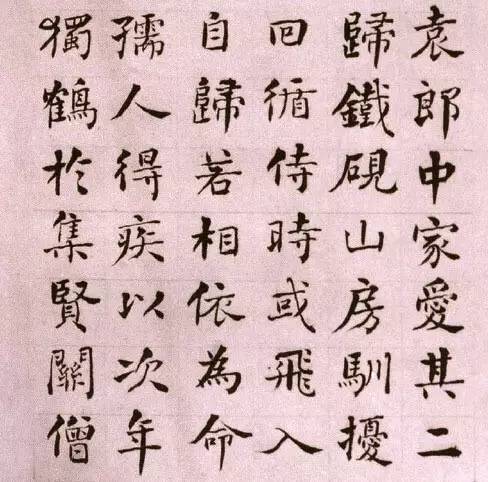 袁郎中家愛其二
歸鐵硯山房馴擾
回循侍時或飛入
自歸若相依為命
孺人得疾以次年
獨鶴於集賢關僧